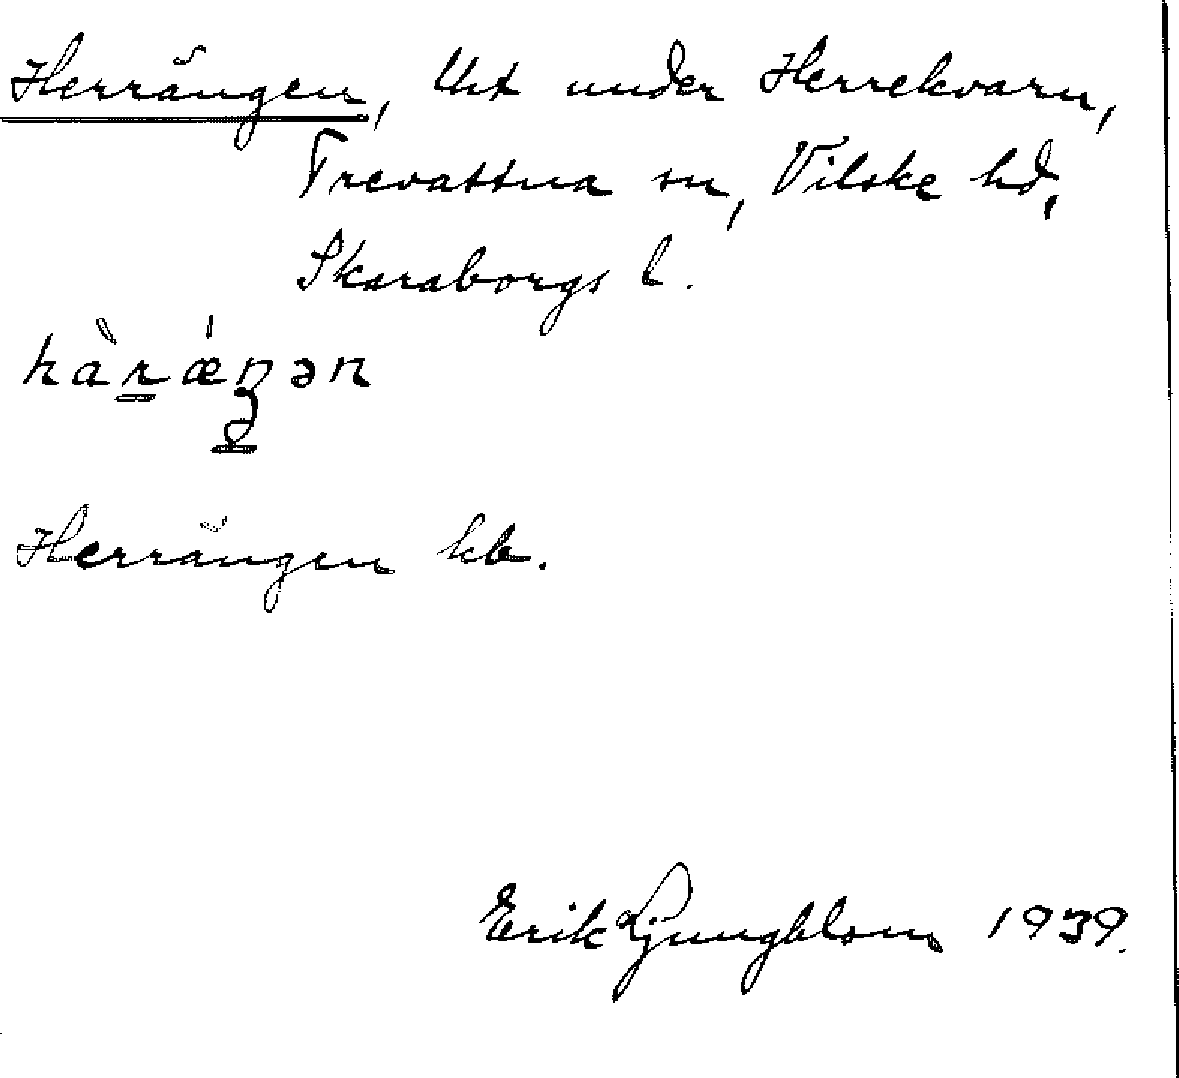 Herrängen, Utt under Herrekvarn,
Trevattna sn, Vilske hd,
Skaraborgs l.
hàrǽŋən
Herrängen kb.
Erik Ljungblom 1939.